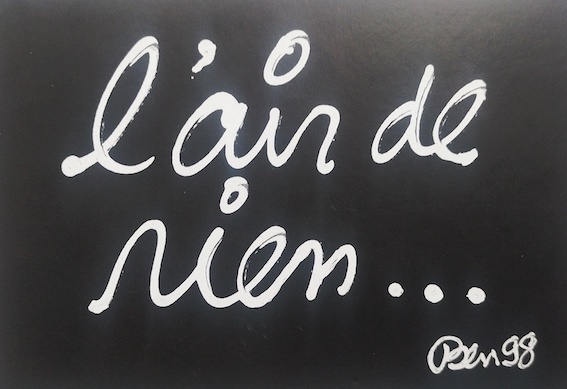 l'air de
rien...
Ben 98